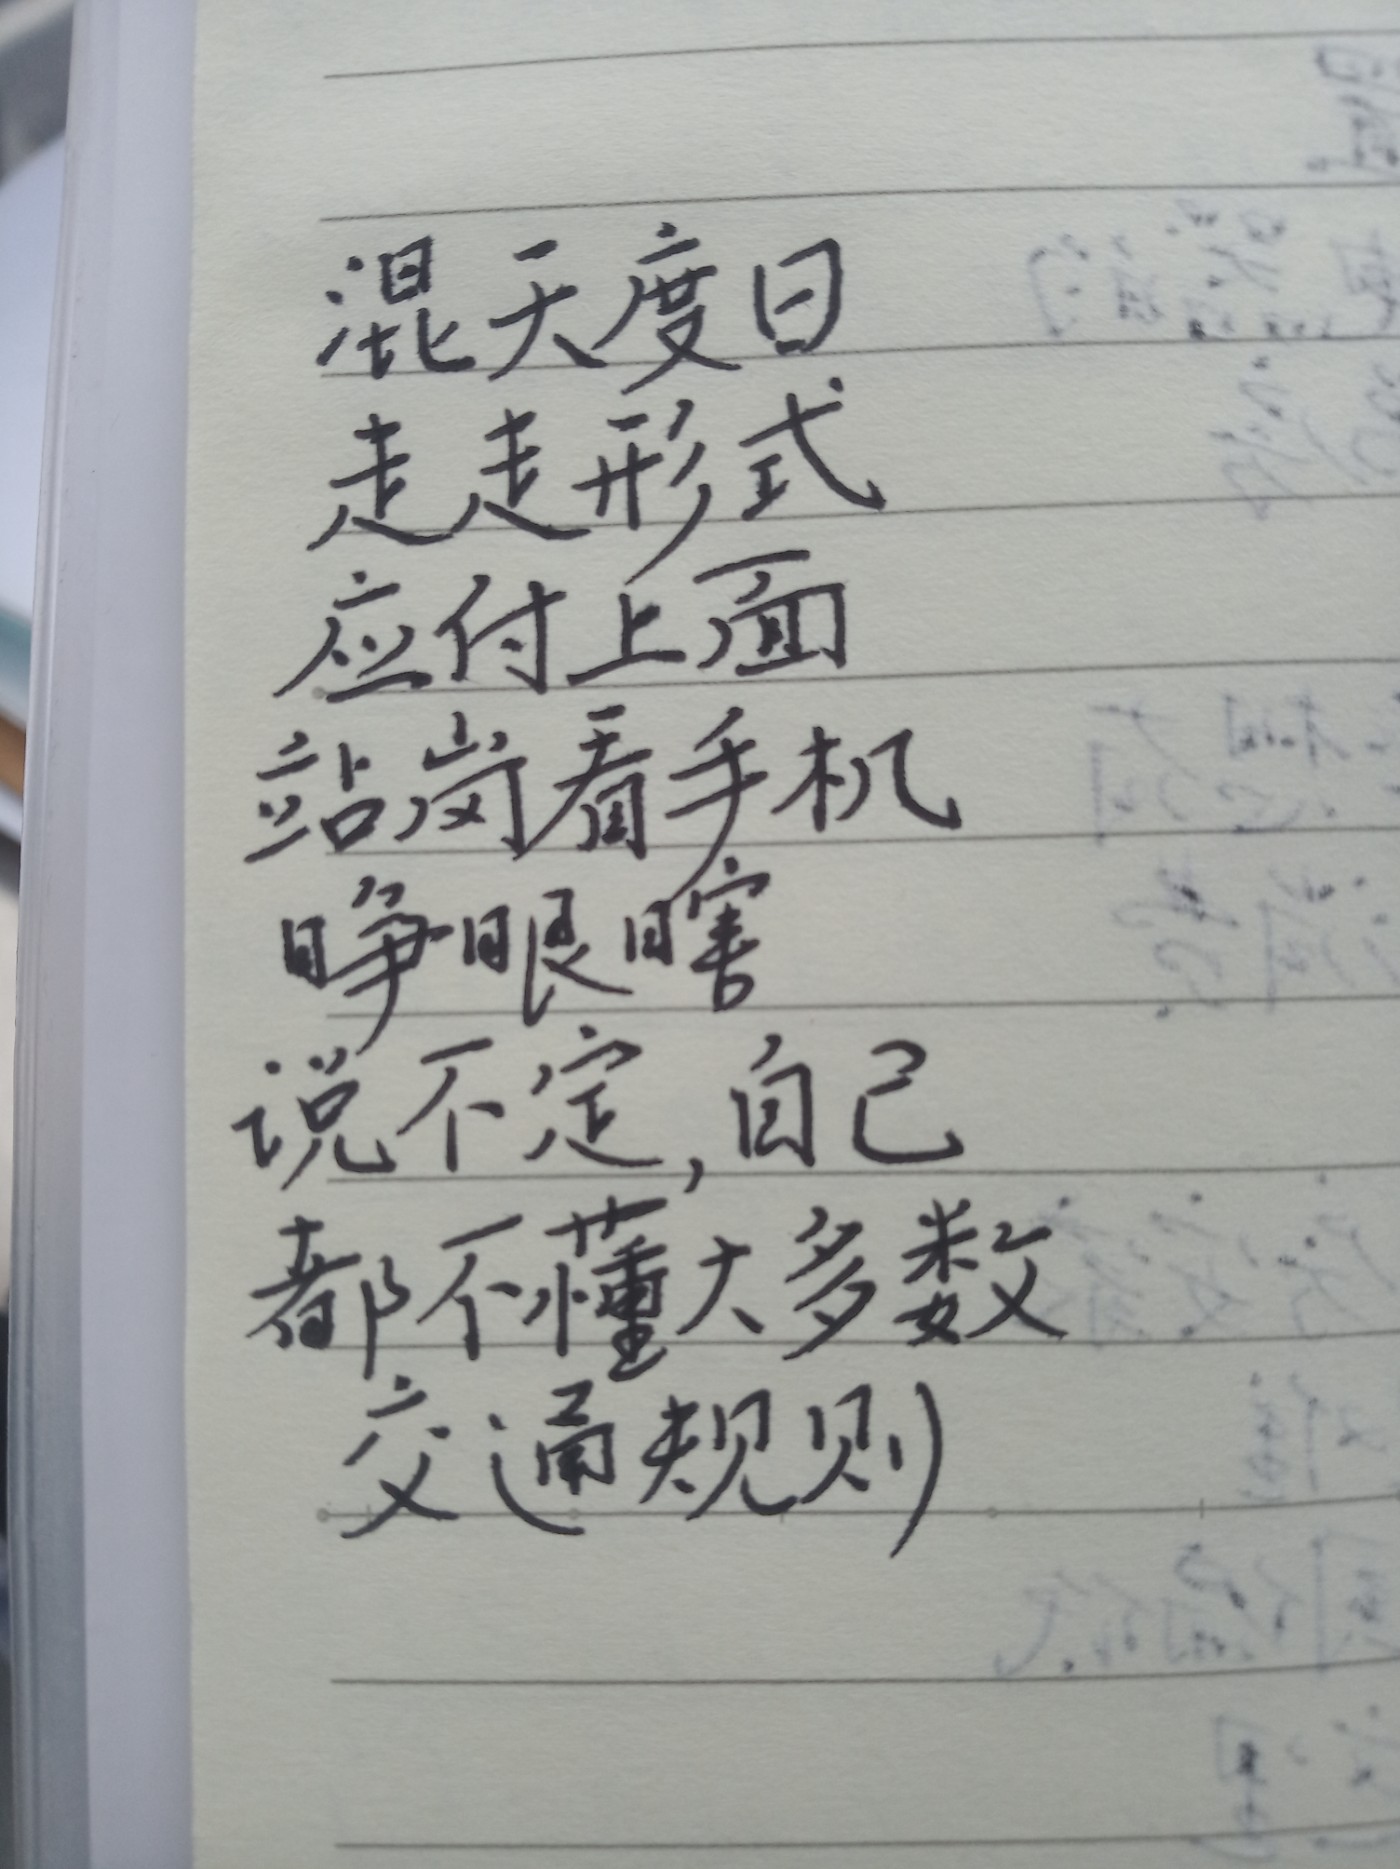 混天度日
走走形式
应付上面
站岗看手机
睁眼瞎
说不定,自己
都不懂大多数
交通规则)